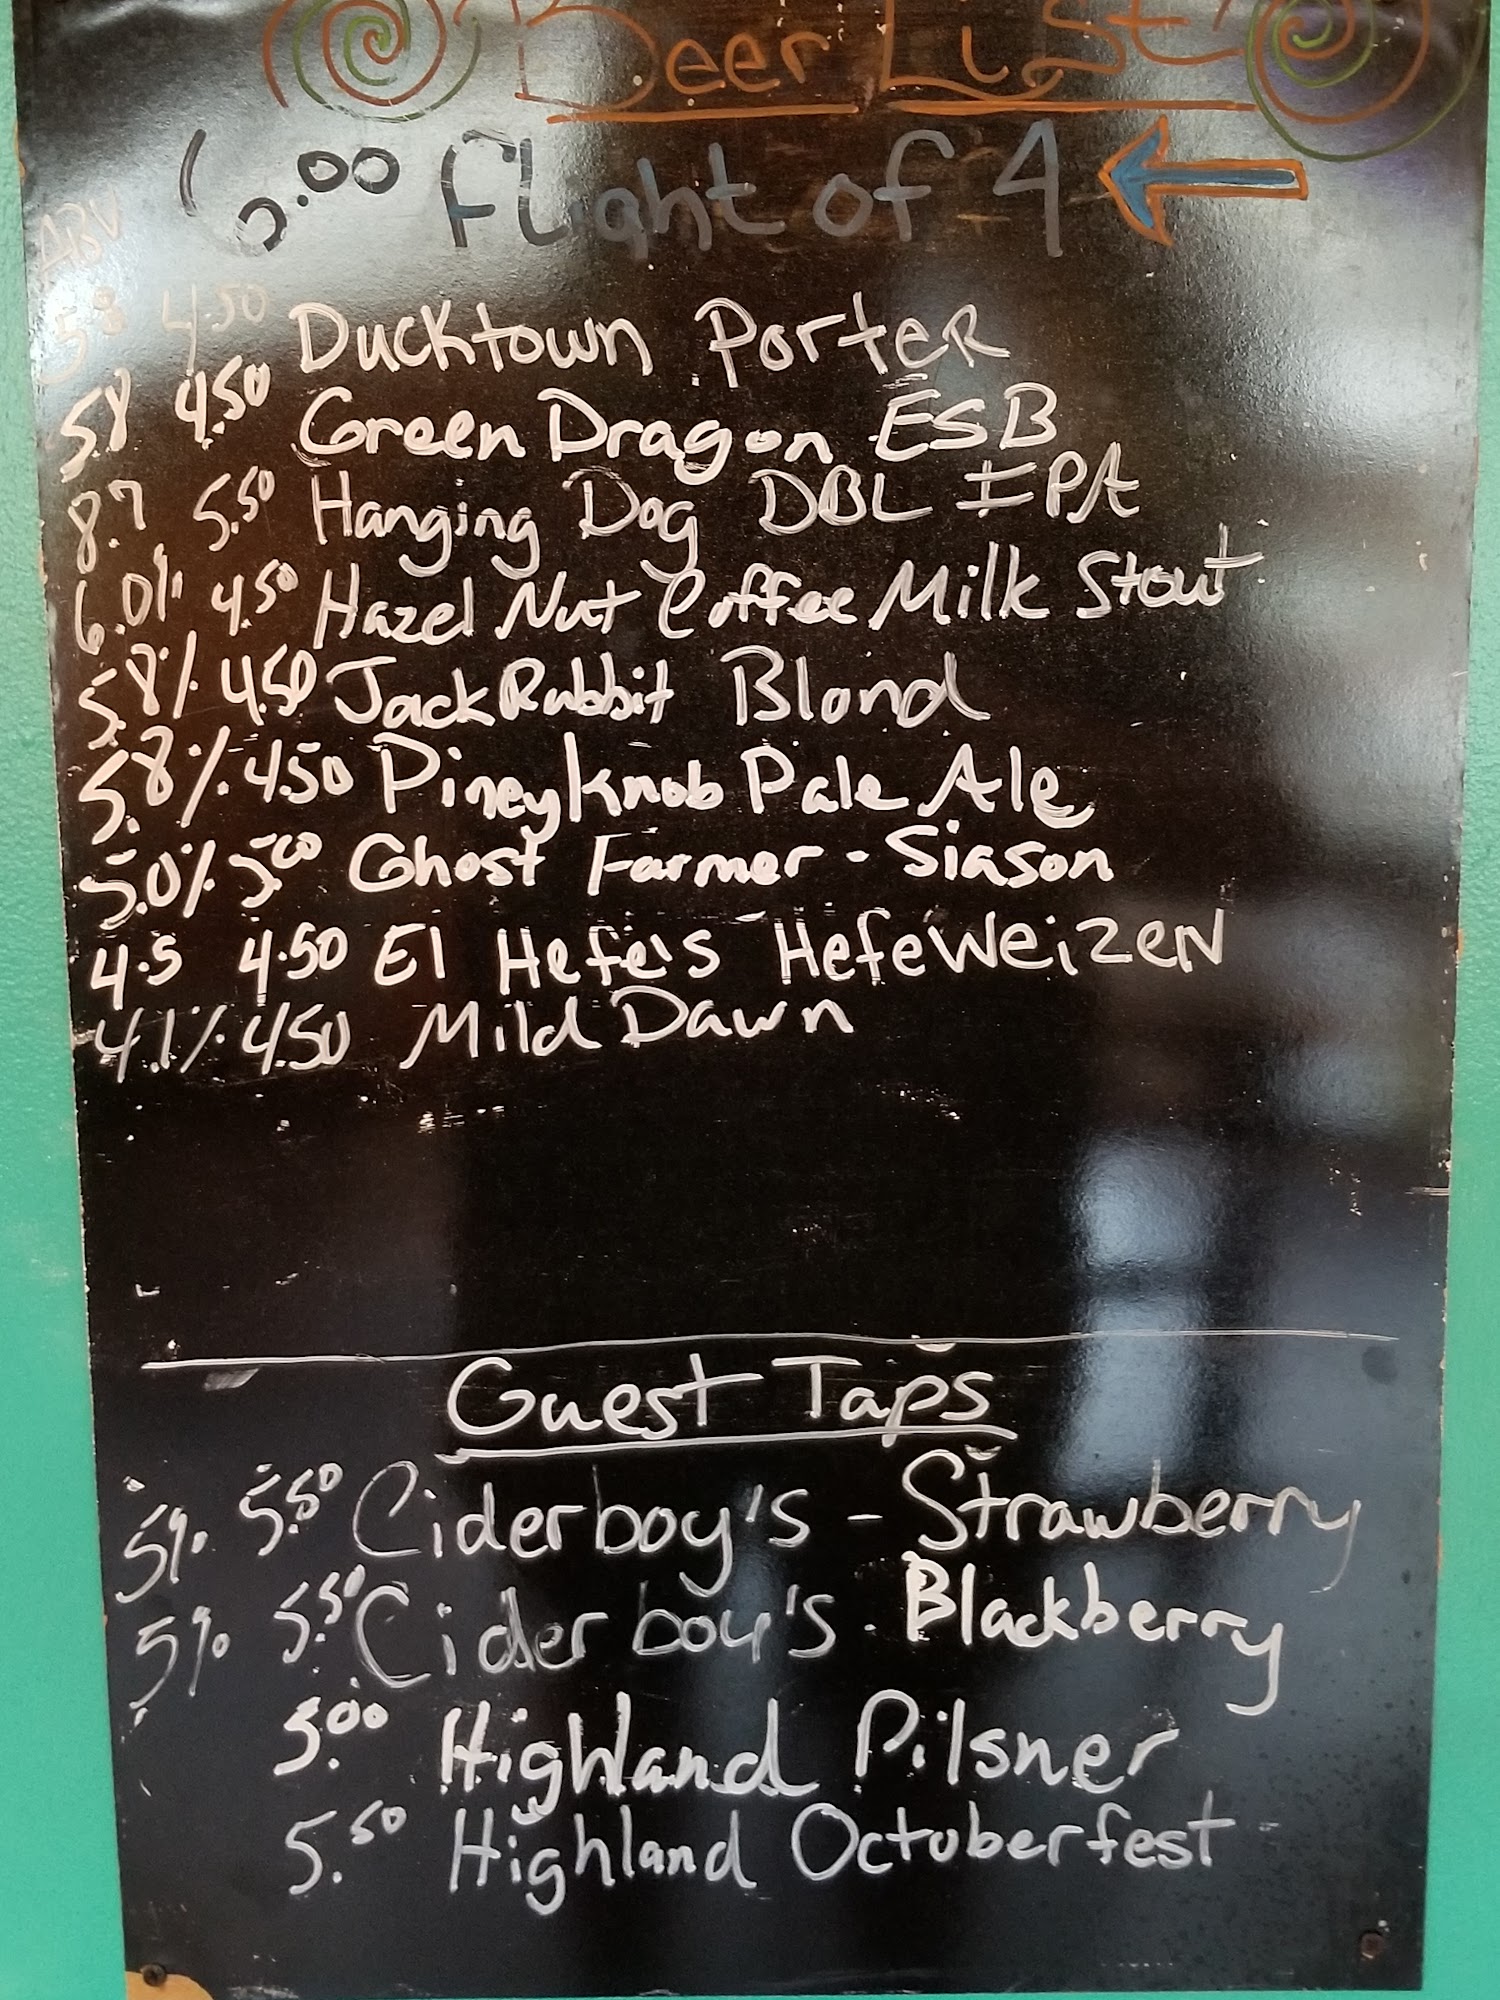 Beer List
6.00 Flight of 4
ABV
5.8 4.50 Ducktown Porter
5.8 4.50 Green Dragon ESB
8.7 5.50 Hanging Dog DBL IPA
6.0% 4.50 Hazel Nut Coffee Milk Stout
5.8% 4.50 Jack Rabbit Blond
5.8% 4.50 Piney Knob Pale Ale
5.0% 5.00 Ghost Farmer - Siason
4.5 4.50 El Hefe's HefeWeizen
4.1% 4.50 Mild Dawn
Guest Taps
5% 5.50 Ciderboy's - Strawberry
5% 5.50 Ciderboy's - Blackberry
5.00 Highland Pilsner
5.50 Highland Octoberfest